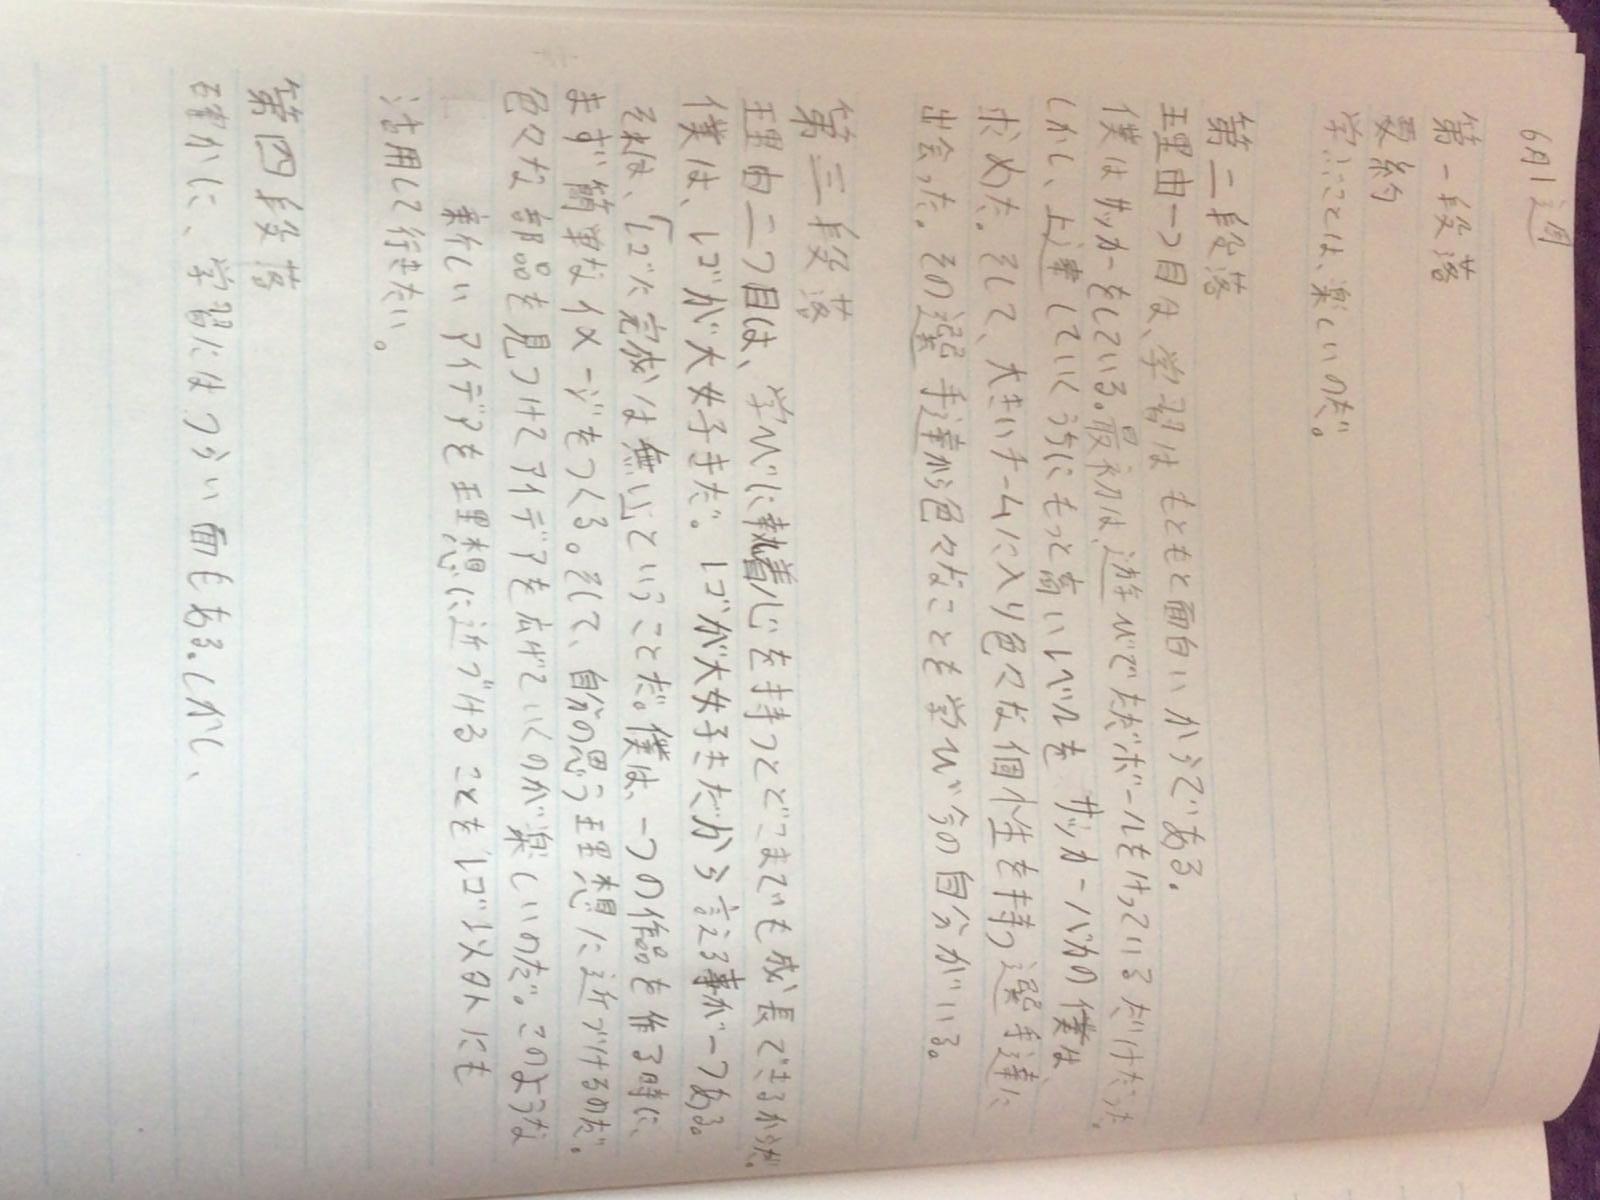 6月1週
第一段落
要約
学ぶことは、楽しいのだ。
第二段落
理由一つ目は、学習はもともと面白いからである。
僕はサッカーをしている。最初は、遊びでただボールをけっているだけだった。
しかし、上達していくうちにもっと高いレベルを サッカーバカの僕は、
求めた。そして、大きいチームに入り色々な個性を持つ選手達に
出会った。その選手達から色々なことも学び今の自分がいる。
第三段落
理由二つ目は、学びに執着心を持つとどこまでも成長できるからだ。
僕は、レゴが大好きだ。レゴが大好きだから言える事が一つある。
それは、「レゴに完成は無い」ということだ。僕は、一つの作品を作る時に、
まず簡単なイメージをつくる。そして、自分の思う理想に近づけるのだ。
色々な部品を見つけてアイデアを広げていくのが楽しいのだ。このような
新しいアイデアを理想に近づけることをレゴ以外にも
活用して行きたい。
第四段落
確かに、学習にはつらい面もある。しかし、